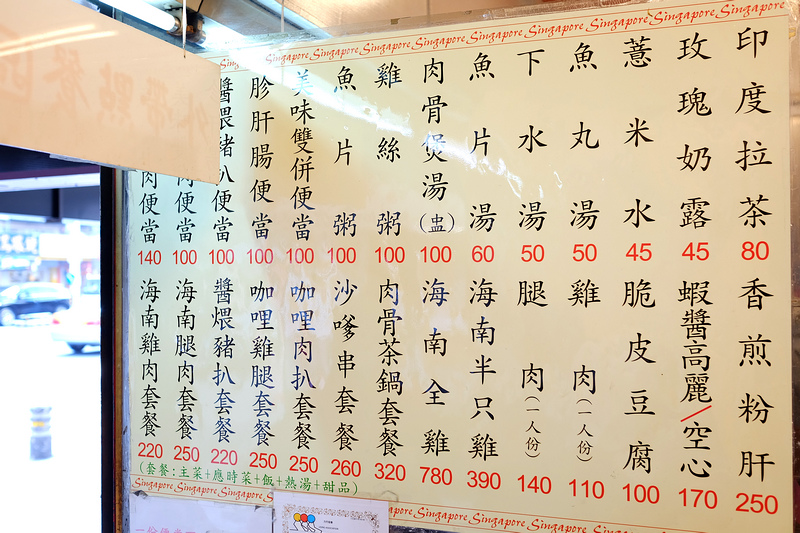 Singapore Singapore Singapore Singapore Singapore Singapore Singapore Singapore Singapore
印度拉茶 80
玫瑰奶露 45
薏米水 45
魚丸湯 50
下水湯 50
魚片湯 60
肉骨煲湯(盅) 100
雞絲粥 100
魚片粥 100
美味雙併便當 100
胗肝腸便當 100
醬煨豬扒便當 100
肉便當 100
肉便當 140
香煎粉肝 250
蝦醬高麗/空心 170
脆皮豆腐 100
雞肉(一人份) 110
腿肉(一人份) 140
海南半只雞 390
海南全雞 780
肉骨茶鍋套餐 320
沙嗲串套餐 260
咖哩肉扒套餐 250
咖哩雞腿套餐 250
醬煨豬扒套餐 220
海南腿肉套餐 250
海南雞肉套餐 220
(套餐:主菜+應時菜+飯+熱湯+甜品)
Singapore Singapore Singapore Singapore Singapore Singapore Singapore